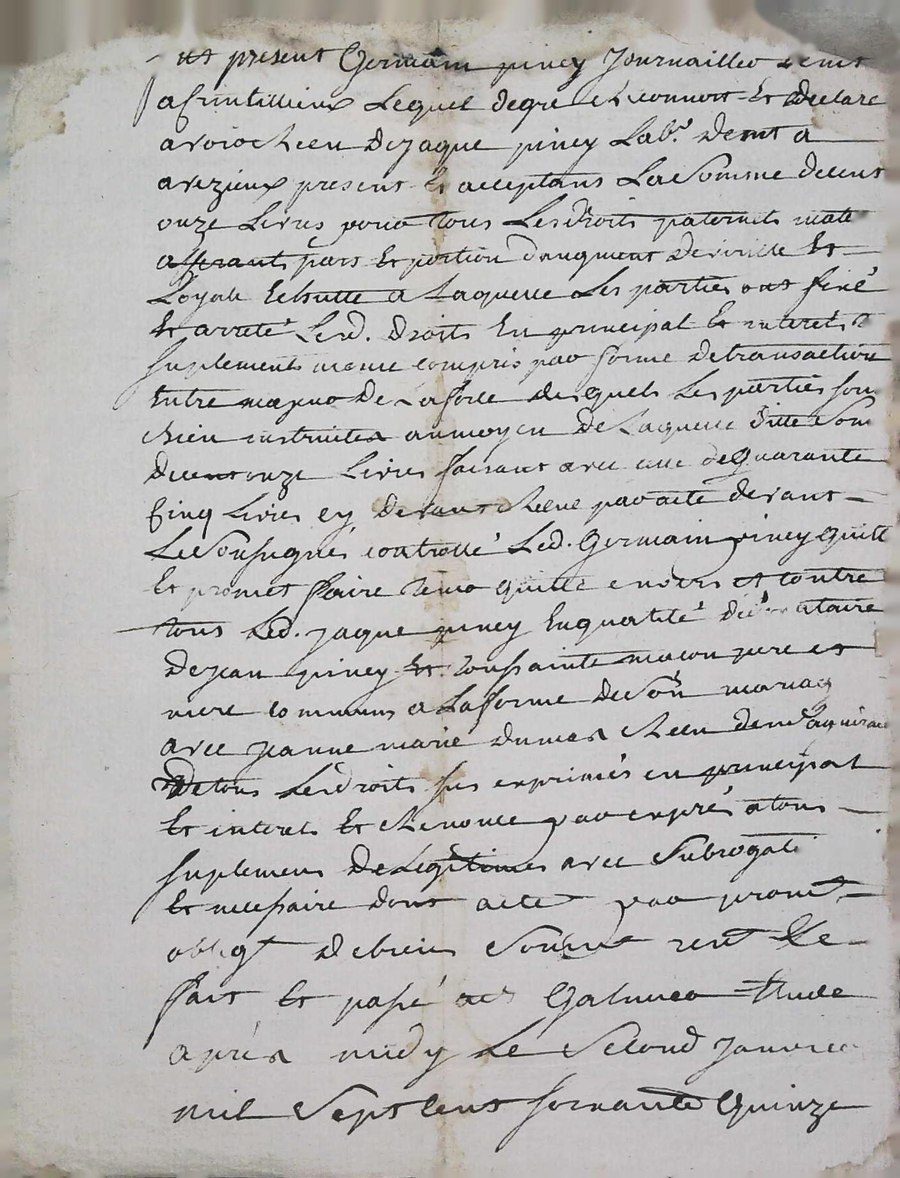 est present Germain piney Journaillier
a Crintillieux Lequel degre et reconnoit Et Declare
avoir Receu De jaque piney Labr. Demt a
avezieux present Et acceptans La Somme decent
onze Livres pour tous Les droits paternels mate
afferants pars Et portion daugment De virille Et
Loyale Echutte a Laquelle Les parties ont fixé
Et arreté Lesd. droits En principal Et interets
suplement meme compris par forme de transaction
Entre De La force desquels Les parties son
bien instruittes aumoyen de Laquelle ditte Som
decent onze Livres faisant avec celle de quarante
cinq Livres cy devant Receue par acte devant
Le Soussigné controllé Led. Germain piney quitt
Et promet faire tenir quitte envers et contre
tous Led. jaque piney En qualité
De jean piney Et toussainte macon pere et
mere communs a La forme de Son mariag
avec jeanne marie dumas Receu
De tous Les droits sus exprimés en principal
Et interets Et Renonce par exprés a tous
suplemens De Legitimes avec Subrogati
Et necessaire dont acte par promt.
obligt. de biens Soumt. rent.
fait Et passé a Galmier Etude
aprés midy Le Second Janvier
mil Sept Cens soixante Quinze